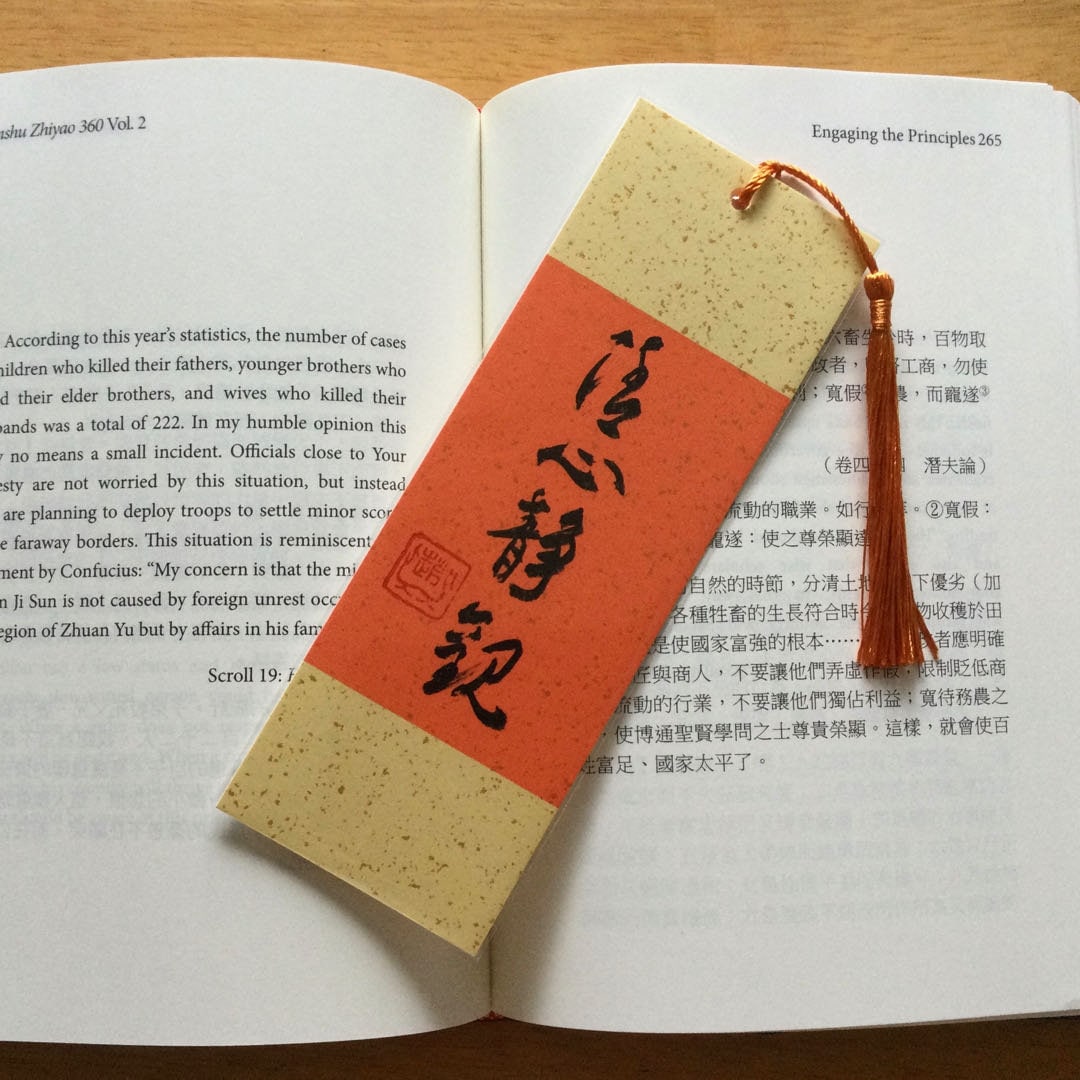 nshu Zhiyao 360 Vol. 2
According to this year's statistics, the number of cases
hildren who killed their fathers, younger brothers who
d their elder brothers, and wives who killed their
bands was a total of 222. In my humble opinion this
y no means a small incident. Officials close to Your
esty are not worried by this situation, but instead
are planning to deploy troops to settle minor
e faraway borders. This situation is reminiscent
ment by Confucius: “My concern is that the
n Ji Sun is not caused by foreign unrest
egion of Zhuan Yu but by affairs in his
Scroll 19:
清心靜觀
Engaging the Principles 265
六畜生於時，百物取
工商，勿使
；寬假 農，而寵遂③
（卷四十四　潛夫論）
流動的職業。如行 。②寬假：
寵遂：使之尊榮顯達
自然的時節，分清土地 下優劣（加
各種牲畜的生長符合時 物收穫於田
是使國家富強的根本…… 者應明確
匠與商人，不要讓他們弄虛作假；限制貶低商
流動的行業，不要讓他們獨佔利益；寬待務農之
，使博通聖賢學問之士尊貴榮顯。這樣，就會使百
姓富足、國家太平了。